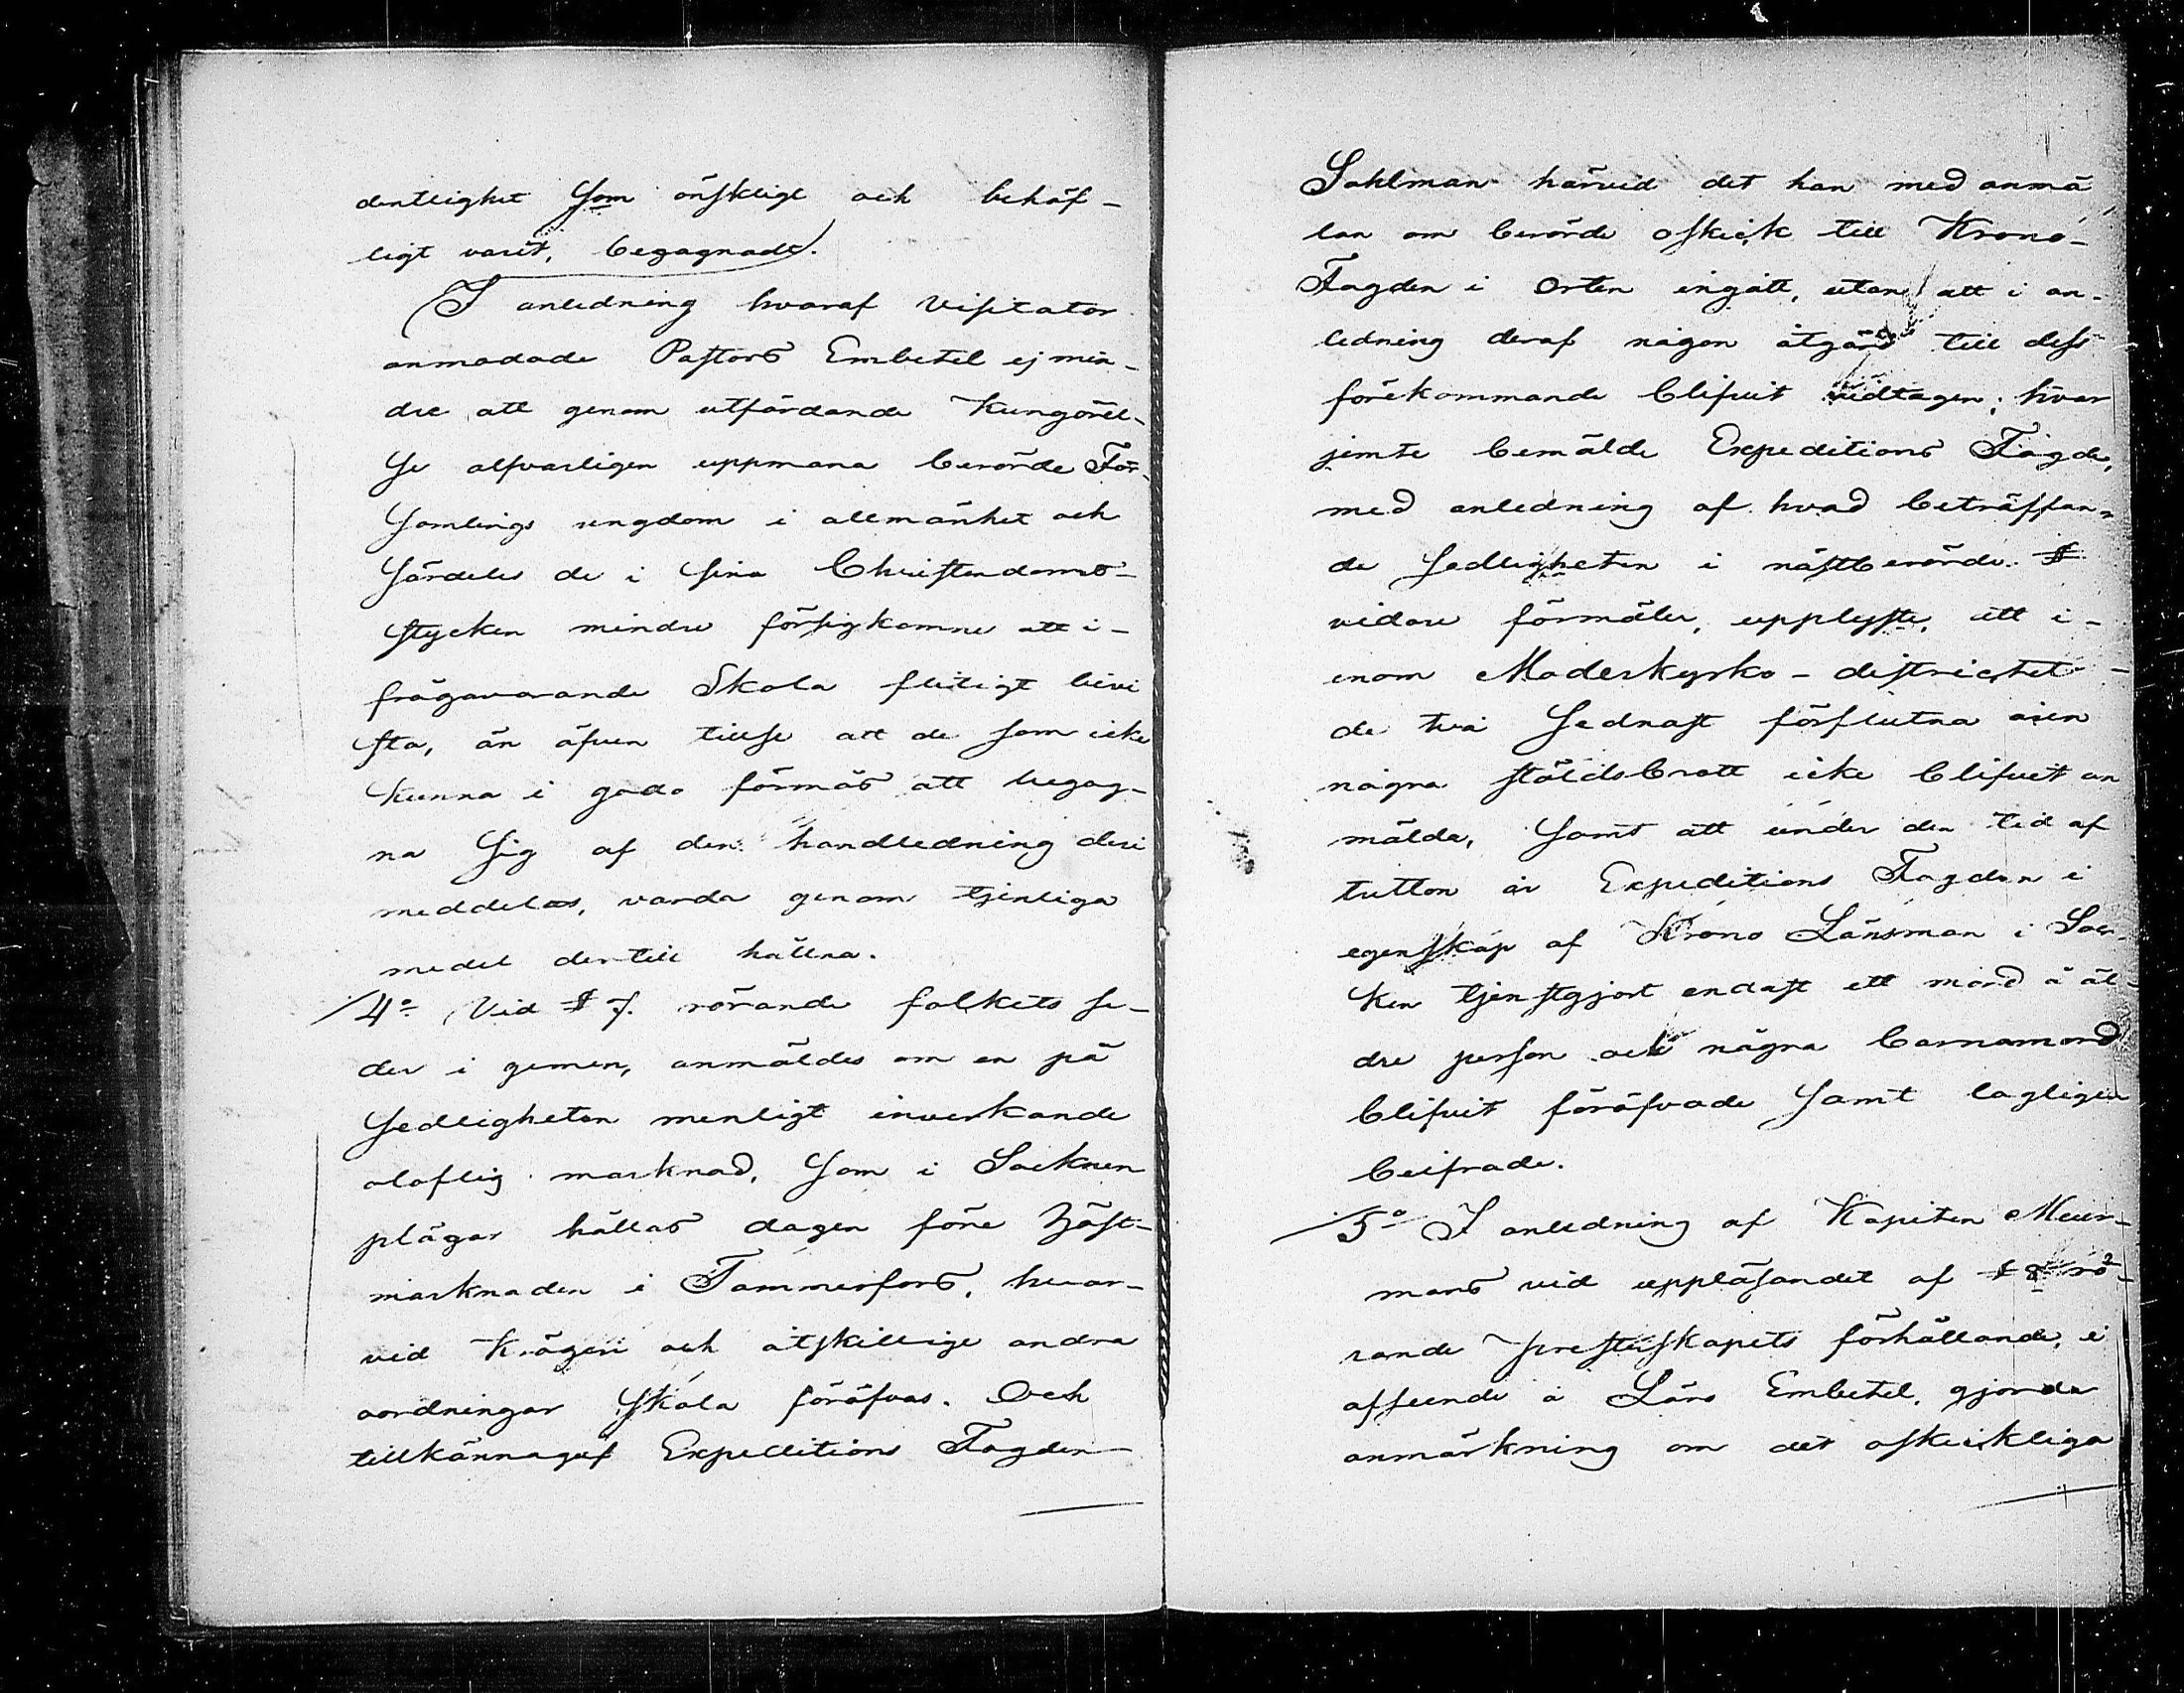 dentlighet som önskligt och behöf-
ligt varit, begagnadt.
I anledning hvaraf Visitator
anmodade Pastors Embetet ej min-
dre att genom utfärdande Kungörel-
se alfvarligen uppmana berörde För-
samlings ungdom i allmänhet och
särdeles de i sina Christendoms-
stycken mindre försigkomne att i-
frågavarande Skola flitigt bevi
sta, än äfven tillse att de som icke
kunna i godo förmås att begag-
na sig af den handledning deri
meddelas, varda genom tjenliga
medel dertill hållna.
4:o Vid § 7. rörande folkets se-
der i gemen, anmäldes om en på
sedligheten menligt inverkande
oloflig marknad, som i Socknen
plägar hållas dagen före Höst-
marknaden i Tammerfors, hvar-
vid Krögeri och åtskillige andra
oordningar skola föröfvas. Och
tillkännagaf Expeditions Fogden
Sahlman härvid det han med anmä
lan om berörde oskick till Krono-
Fogden i Orten ingått, utan att i an-
ledning deraf någon åtgärd till dess
förekommande blifvit vidtagen; hvar
jemte bemälde Expeditions Fogde,
med anledning af hvad beträffan-
de sedligheten i nästberörde §
vidare förmäles, upplyste, att i-
nom Moderkyrko-districtet
de två sednast förflutna åren
några stöldsbrott icke blifvit an
mälda, samt att under den tid af
tretton år Expeditions Fogden i
egenskap af Krono Länsman i Soc-
ken tjenstgjort endast ett mord å äl-
dre person och några barnamord
blifvit föröfvade samt lagligen
beifrade.
5:o I anledning af Kapiten Meur-
mans vid uppläsandet af § 8 rö-
rande Presterskapets förhållande, i
afseende å Läro Embetet, gjorde
anmärkning om det oskickliga